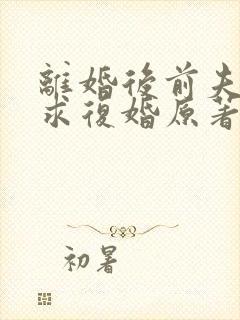 離婚後前夫
求復婚原著
初暑